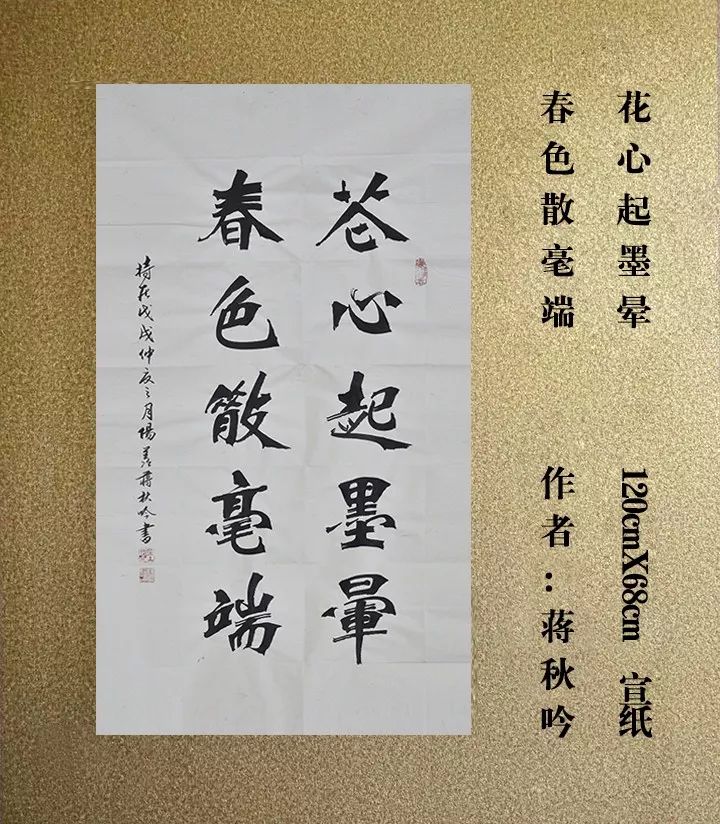 花心起墨晕
春色散毫端
120cmX68cm 宣纸
作者：蒋秋吟
花心起墨暈
春色散毫端
時在戊戌仲夏之月陽羨蔣秋吟書